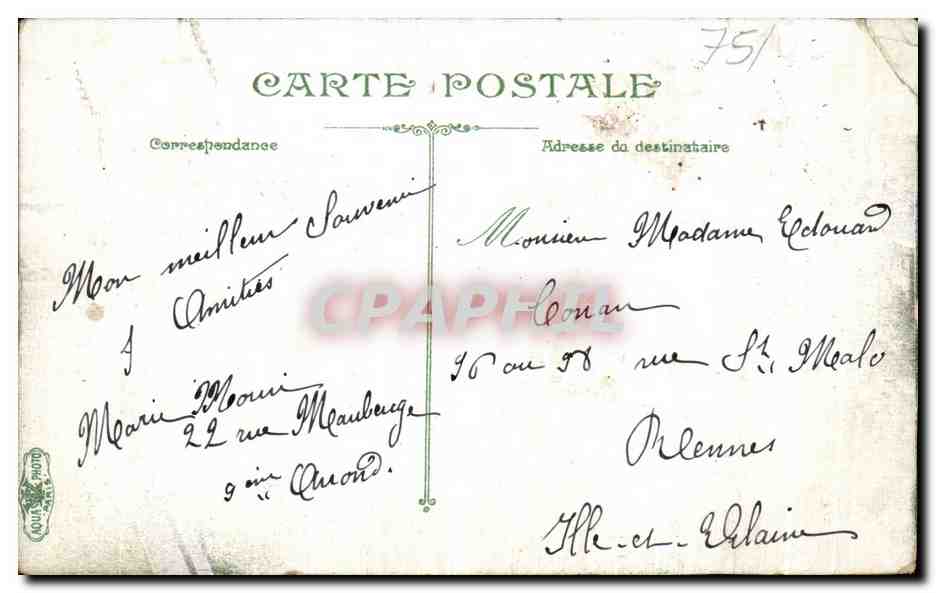 75/
CARTE POSTALE
Correspondance
Adresse du destinataire
Mon meilleur Souvenir
& Amitiés
Marie
22 rue Maubeuge
9ème Arrond.
Monsieur Madame Edouard
Conan
96 ou 98 rue St. Malo
Rennes
Ille-et-Vilaine
CPAPHIL
AQUA PHOTO
PARIS